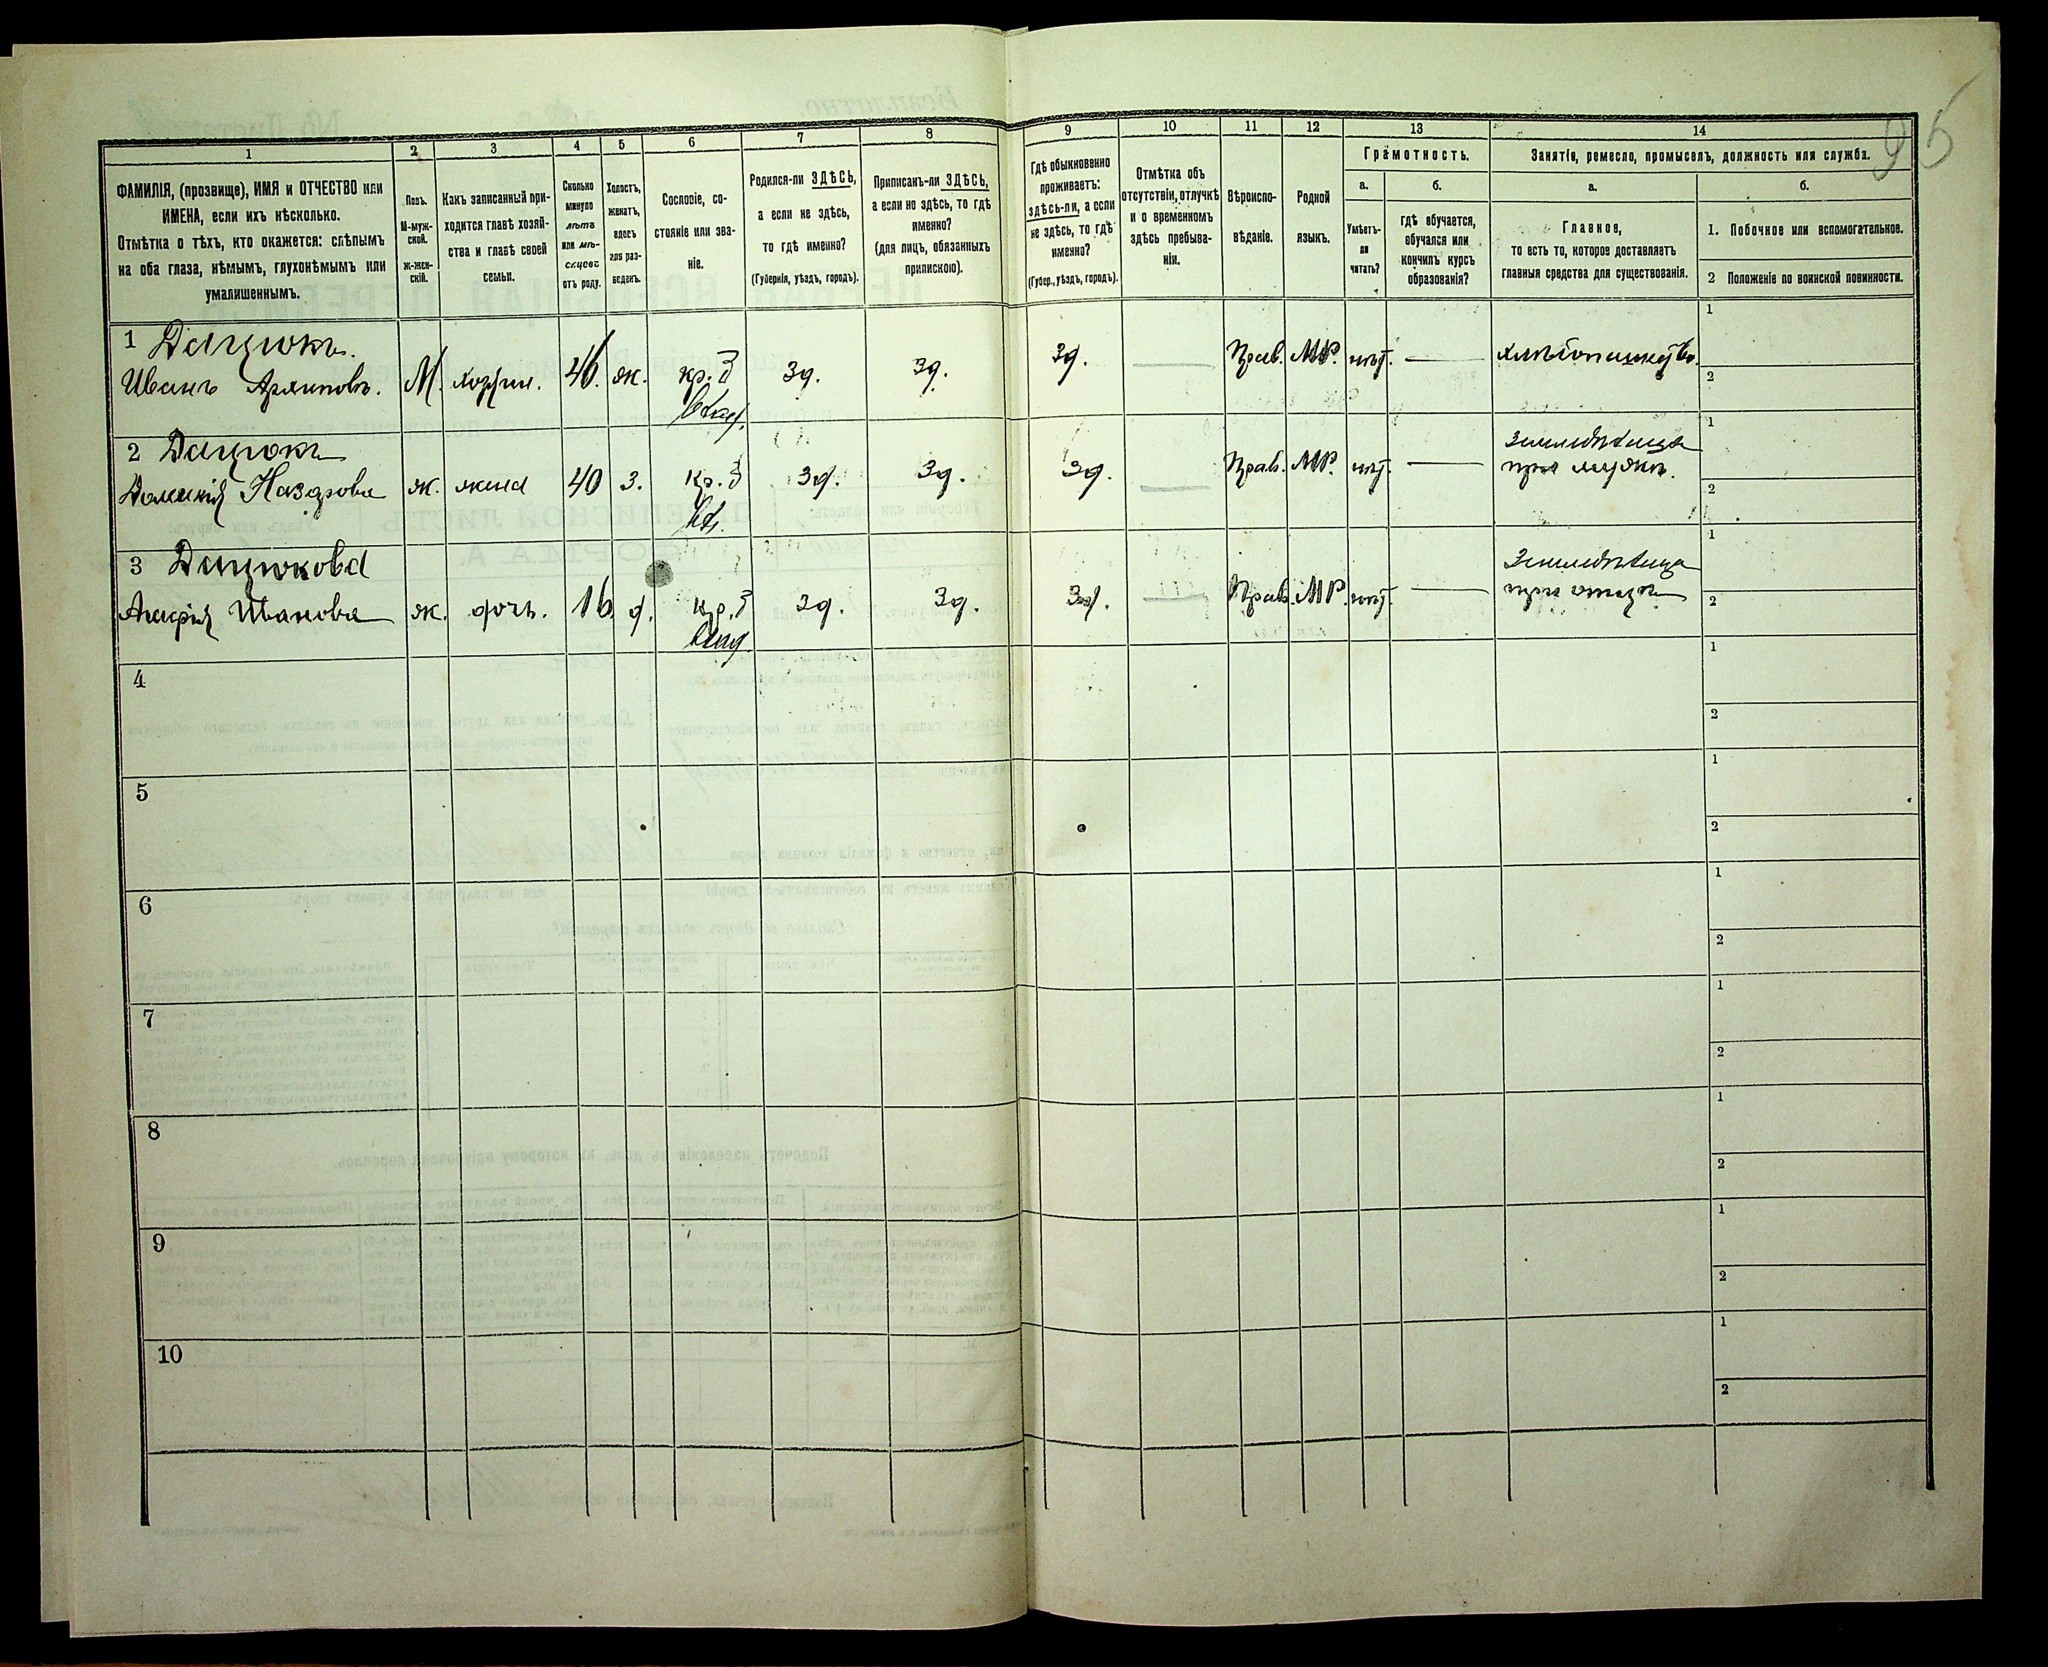 95
1 2 3 4 5 6 7 8 9 10 11 12 13 14
ФАМИЛІЯ, (прозвище), ИМЯ и ОТЧЕСТВО или
ИМЕНА, если ихъ нѣсколько.
Отмѣтка о тѣхъ, кто окажется: слѣпымъ
на оба глаза, нѣмымъ, глухонѣмымъ или
умалишеннымъ.
Полъ.
М-муж-
ской.
ж-жен-
скій.
Какъ записанный при-
ходится главѣ хозяй-
ства и главѣ своей
семьи.
Сколько
минуло
лѣтъ
или мѣ-
сяцевъ
отъ роду.
Холостъ,
женатъ,
вдовъ
или раз-
веденъ.
Сословіе, со-
стояніе или зва-
ніе.
Родился-ли ЗДѢСЬ,
а если не здѣсь,
то гдѣ именно?
(Губернія, уѣздъ, городъ).
Приписанъ-ли ЗДѢСЬ,
а если не здѣсь, то гдѣ
именно?
(для лицъ, обязанныхъ
припискою).
Гдѣ обыкновенно
проживаетъ:
здѣсь-ли, а если
не здѣсь, то гдѣ
именно?
(Губер., уѣздъ, городъ).
Отмѣтка объ
отсутствіи, отлучкѣ
и о временномъ
здѣсь пребыва-
ніи.
Вѣроиспо-
вѣданіе.
Родной
языкъ.
Грамотность.
а.
Умѣетъ-
ли
читать?
б.
гдѣ обучается,
обучался или
кончилъ курсъ
образованія?
Занятіе, ремесло, промыселъ, должность или служба.
а.
Главное,
то есть то, которое доставляетъ
главныя средства для существованія.
б.
1. Побочное или вспомогательное.
2 Положеніе по воинской повинности.
1 Дацюкъ.
Иванъ Архиповъ. М. хозяин. 46. ж. кр. з зд. зд. зд. Прав. МР. нѣт. хлѣбопашество. 1
влад. 2
2 Дацюкъ
Домникія Назарова ж. жена 40 з. кр. з зд. зд. зд. Прав. МР. нѣт. земледѣлица 1
при мужѣ. 2
3 Дацюкова
Ивановa ж. дочь. 16 д. кр. з зд. зд. зд. Прав. МР. нѣт. Земледѣлица 1
влад. при отцѣ 2
4 1
2
5 1
2
6 1
2
7 1
2
8 1
2
9 1
2
10 1
2